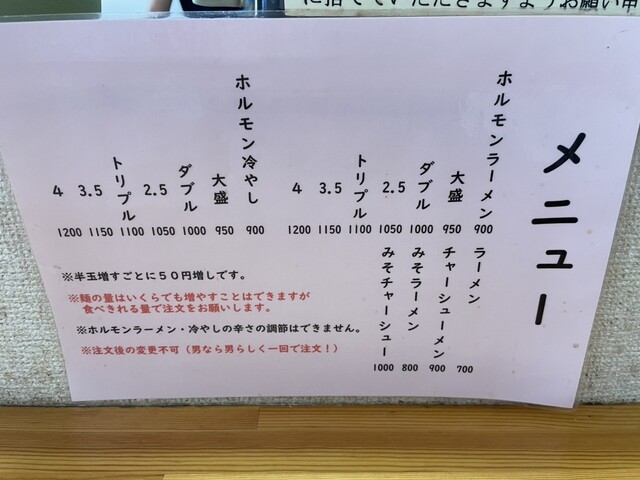 に捨てていただきますようお願い申
メニュー
ホルモンラーメン 900
大盛 950
ダブル 1000
2.5 1050
トリプル 1100
3.5 1150
4 1200
ホルモン冷やし 900
大盛 950
ダブル 1000
2.5 1050
トリプル 1100
3.5 1150
4 1200
ラーメン 700
チャーシューメン 900
みそラーメン 800
みそチャーシュー 1000
※半玉増すごとに50円増しです。
※麺の量はいくらでも増やすことはできますが
食べきれる量で注文をお願いします。
※ホルモンラーメン・冷やしの辛さの調節はできません。
※注文後の変更不可（男なら男らしく一回で注文！）